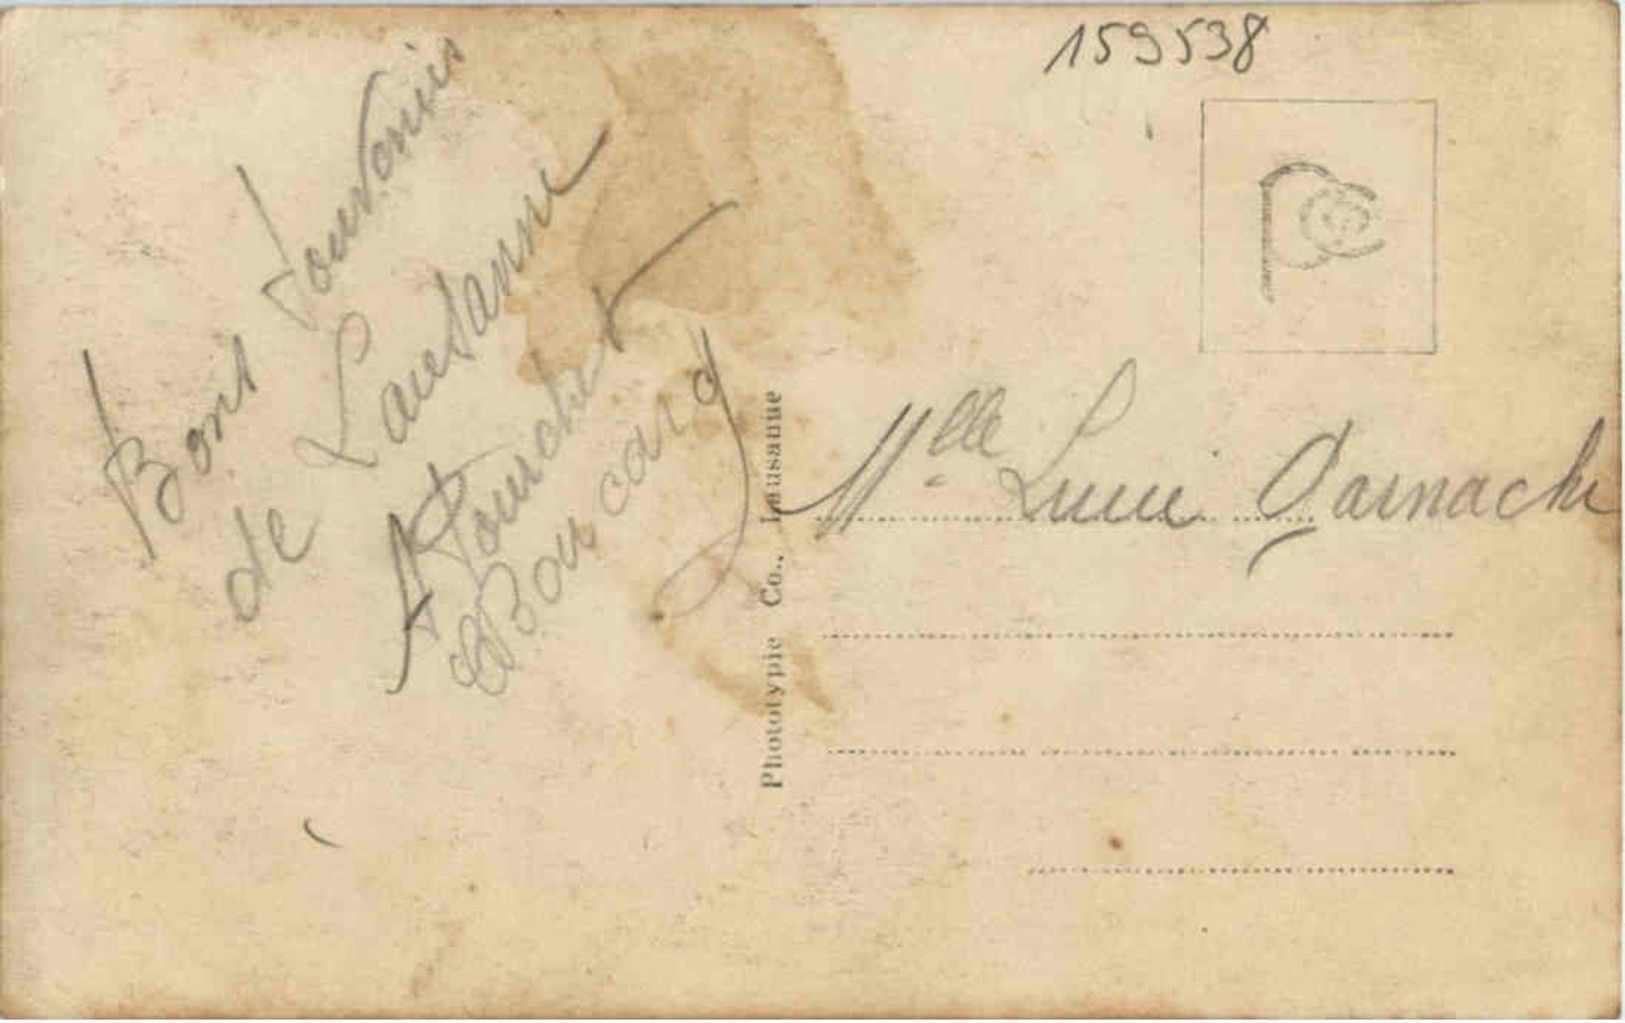 159538
Bons souvenirs
de Lausanne
A Pourchet
Boucard
Phototypie Co., Lausanne
Mlle Lucie Garnache